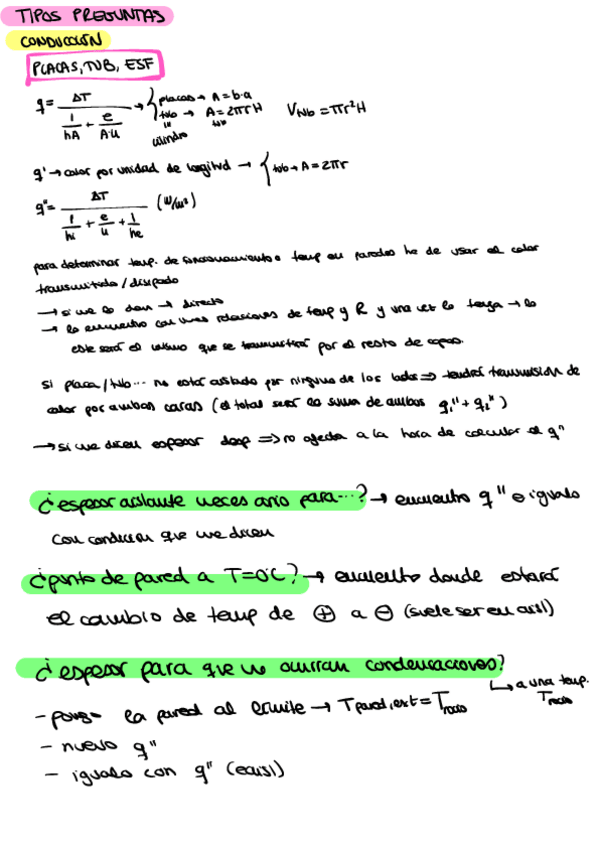 TIPOS PREGUNTAS
CONDUCCIÓN
PLACAS, TUB, ESF
q = ΔT / (1/hA + e/A·u) → { placas → A = b·a
tubo → A = 2πrH
cilindro
V tub = πr²H
q' → calor por unidad de longitud → { tub → A = 2πr
q'' = ΔT / (1/hi + e/u + 1/he) (W/m²)
para determinar temp. de funcionamiento o temp en paredes he de usar el calor
transmitido / disipado
→ si me lo dan → directo
→ lo encuentro con unas relaciones de temp y R y una vez lo tenga → lo
este será el mismo que se transmitirá por el resto de capas.
Si placa / tub... no está aislado por ninguno de los lados ⇒ tendrá transmisión de
calor por ambas caras (el total será la suma de ambos q₁'' + q₂'')
→ si me dicen espesor desp ⇒ no afecta a la hora de calcular el q''
¿espesor aislante necesario para...? → encuentro q'' e igualo
con condición que me dicen
¿punto de pared a T=0°C? → encuentro donde estará
el cambio de temp de ⊕ a ⊖ (suele ser en aisl)
¿espesor para que no ocurran condensaciones?
↳ a una temp. Trocío
- pongo la pared al límite → T pared, ext = T rocío
- nuevo q''
- igualo con q'' (eaisl)